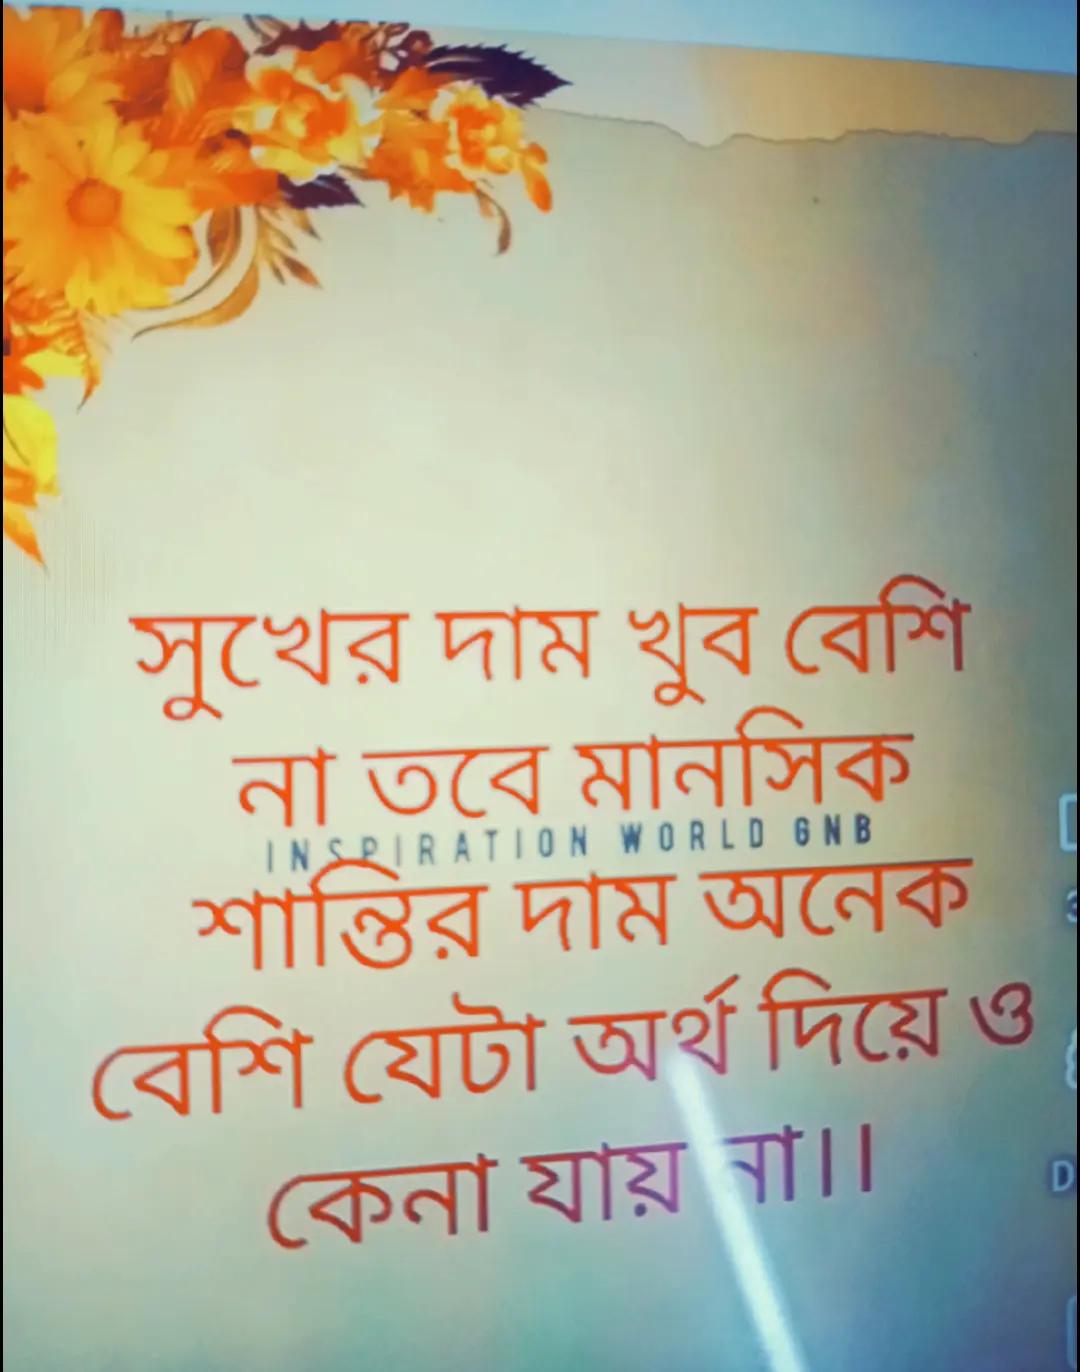 সুখের দাম খুব বেশি
না তবে মানসিক
INSPIRATION WORLD GNB
শান্তির দাম অনেক
বেশি যেটা অর্থ দিয়ে ও
কেনা যায় না।।